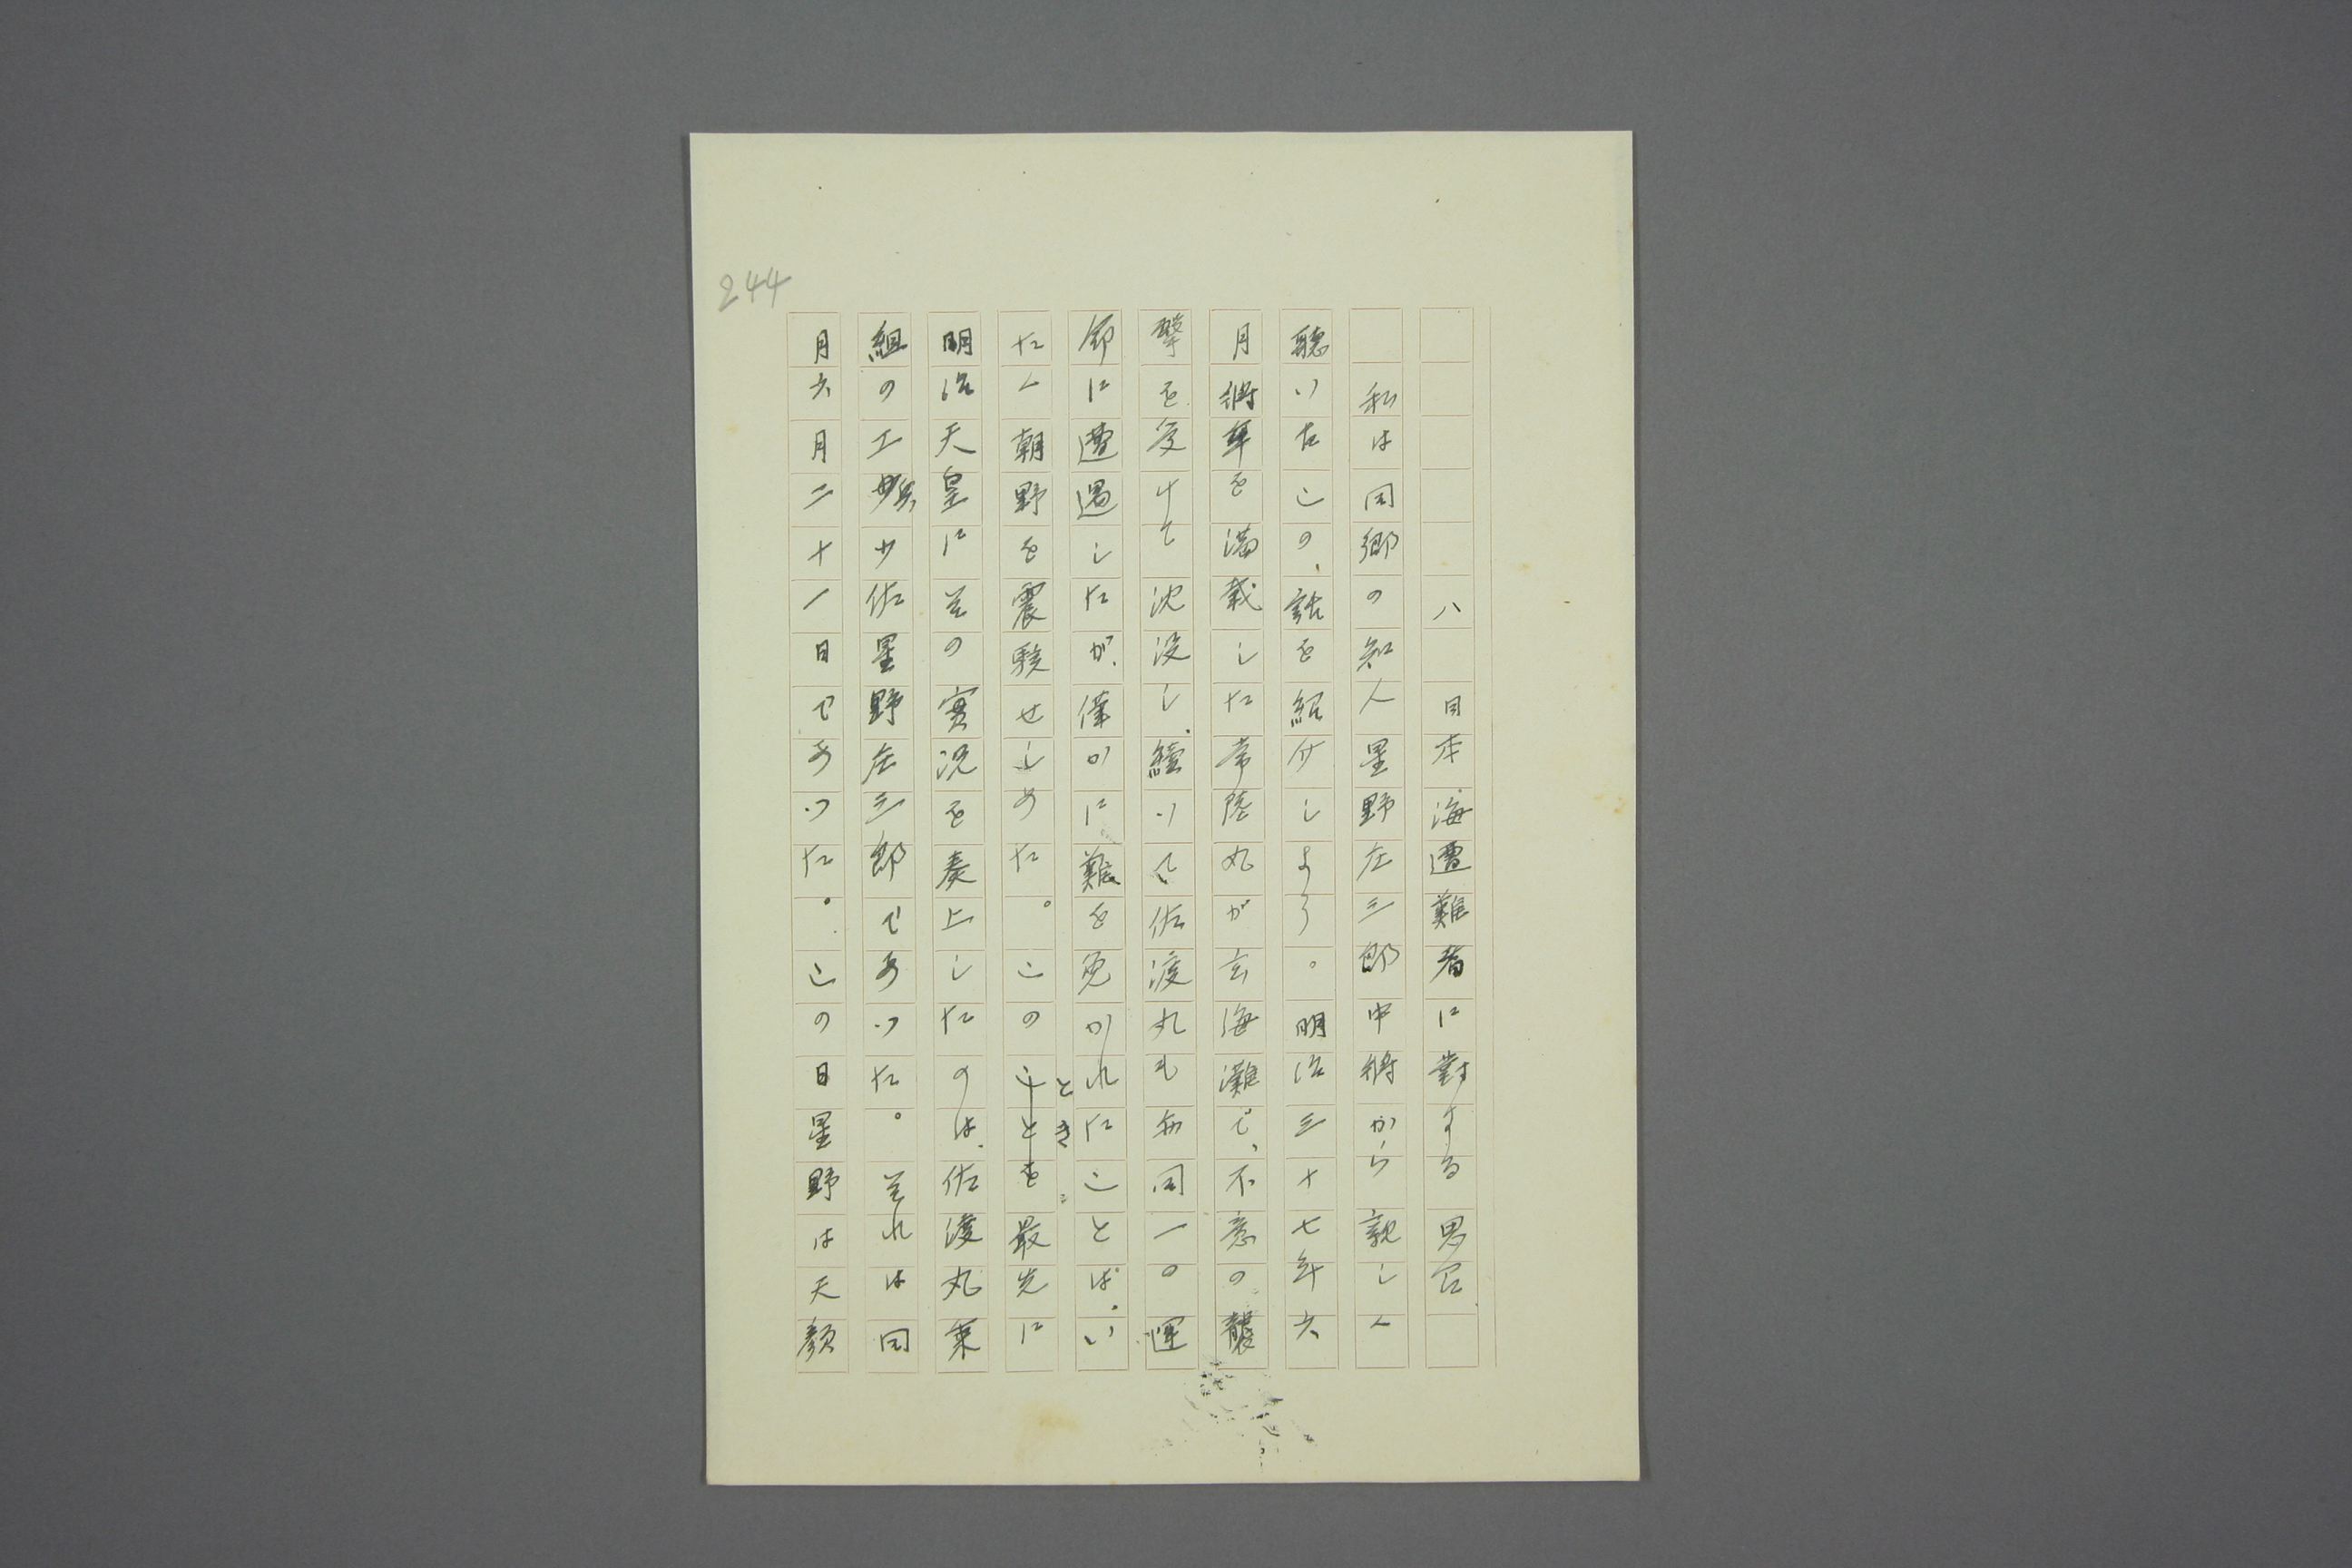 244
八 日本海遭難者に對する思召
私は同郷の知人星野庄三郎中將から親しく
聽いたこの、話を紹介しよう。明治三十七年六
月將卒を満載した常陸丸が玄海灘で、不意の襲
擊を受けて沈没し、續いて佐渡丸も毎同一の運
命に遭遇したが、僅かに難を免かれたことは、い
たく朝野を震駭せしめた。このことを最先に
とき
明治天皇に其の實況を奏上したのは、佐渡丸乘
組の工兵少佐星野庄三郎であつた。それは同
月六月二十一日であつた。この日星野は天顏